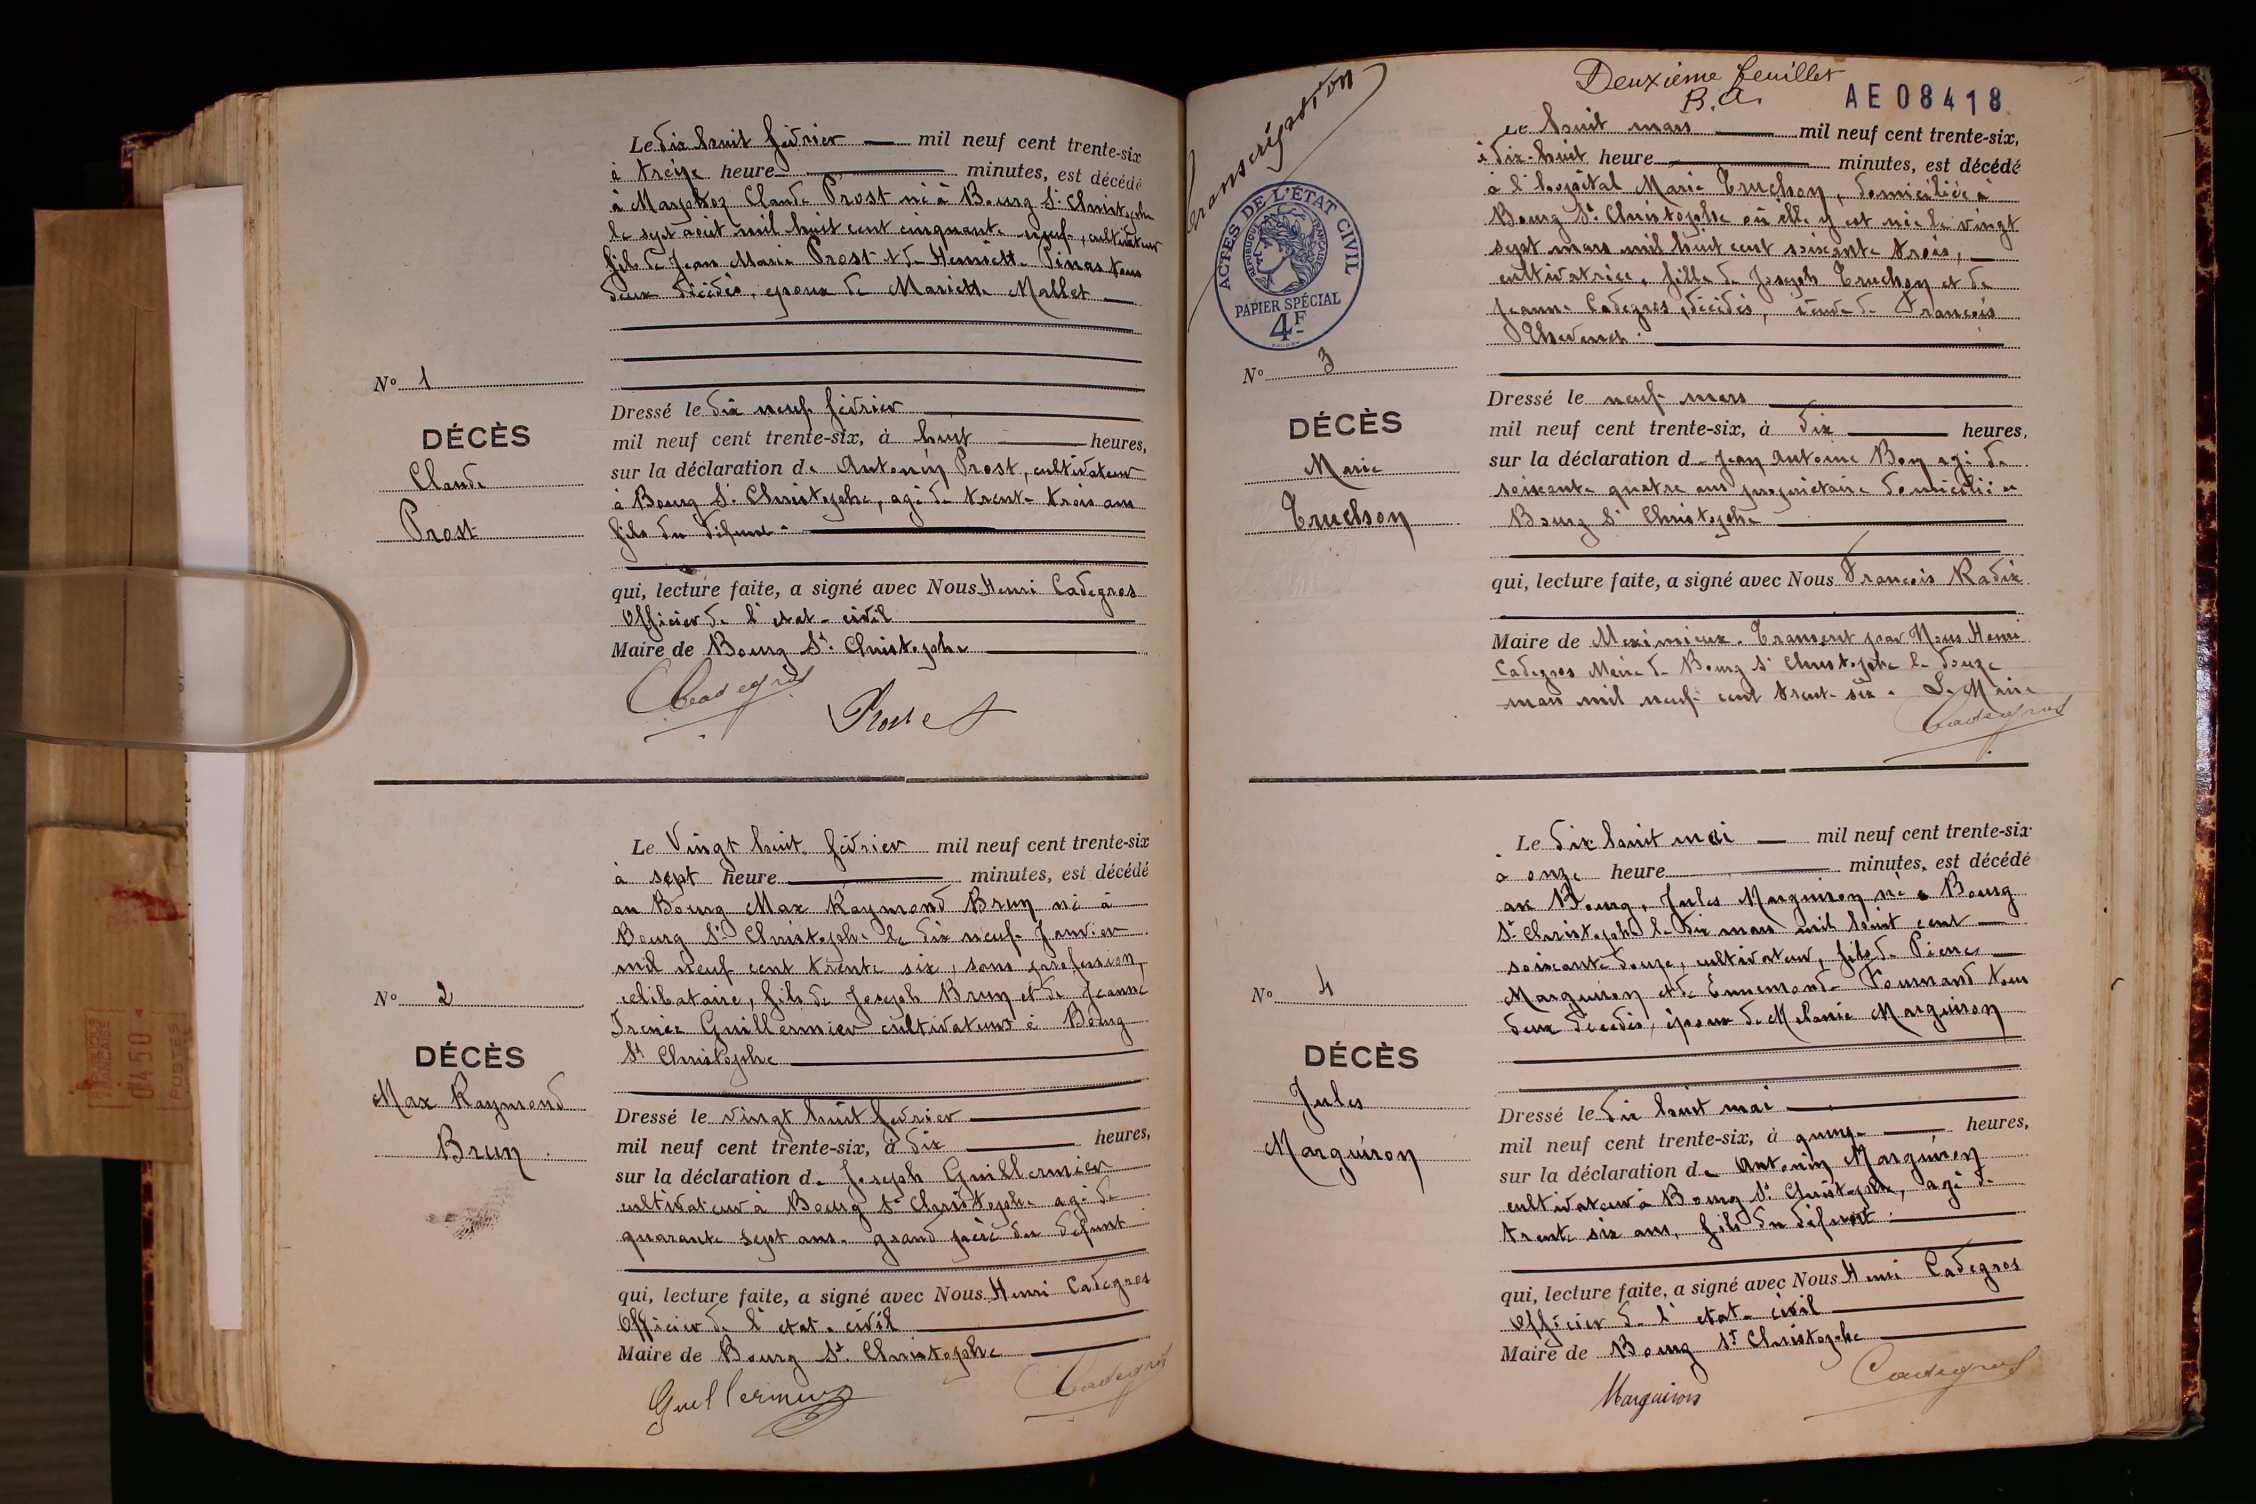 Le dix huit février mil neuf cent trente-six
à treize heure minutes, est décédé
à Marfoz Claude Prost né à Bourg St Christophe
le sept août mil huit cent cinquante neuf, cultivateur
fils de Jean Marie Prost et de Henriette Pinas tous
deux décédés, époux de Mariette Mallet
N° 1
DÉCÈS
Claude
Prost
Dressé le dix neuf février
mil neuf cent trente-six, à huit heures,
sur la déclaration de Antonin Prost, cultivateur
à Bourg St Christophe, agé de trente trois ans
fils du défunt
qui, lecture faite, a signé avec Nous Henri Cadegros
Officier de l'etat-civil
Maire de Bourg St Christophe
Cadegros
Prost
Le Vingt huit février mil neuf cent trente-six
à sept heure minutes, est décédé
au Bourg Max Raymond Brun né à
Bourg St Christophe le dix neuf Janvier
mil neuf cent trente six, sans profession,
celibataire, fils de Joseph Brun et de Jeanne
Irenée Guillermier cultivateurs à Bourg
St Christophe
N° 2
DÉCÈS
Max Raymond
Brun.
Dressé le vingt huit février
mil neuf cent trente-six, à dix heures,
sur la déclaration de Joseph Guillermier
cultivateur à Bourg St Christophe agé de
quarante sept ans. grand père du défunt
qui, lecture faite, a signé avec Nous Henri Cadegros
Officier de l'etat-civil
Maire de Bourg St Christophe
Guillermier
Cadegros
Deuxième feuillet
B.A.
AE08418
Transcription
ACTES DE L'ÉTAT CIVIL
REPUBLIQUE FRANÇAISE
PAPIER SPÉCIAL
4F
Le huit mars mil neuf cent trente-six,
à dix-huit heure minutes, est décédé
à l'hopital Marie Truchon, domiciliée à
Bourg St Christophe où elle y est née le vingt
sept mars mil huit cent soixante trois,
cultivatrice, fille de Joseph Truchon et de
Jeanne Cadegros, décédés, veuve de François
Thevenet.
N° 3
DÉCÈS
Marie
Truchon
Dressé le neuf mars
mil neuf cent trente-six, à dix heures,
sur la déclaration de Jean Antoine Bon agé de
soixante quatre ans propriétaire domicilié à
Bourg St Christophe
qui, lecture faite, a signé avec Nous François Radix
Maire de Meximieux. Transcrit par Nous Henri
Cadegros Maire de Bourg St Christophe le douze
mars mil neuf cent trente six. Le Maire
Cadegros
Le dix huit mai mil neuf cent trente-six
à onze heure minutes, est décédé
au Bourg, Jules Marguiron né à Bourg
St Christophe le dix mars mil huit cent
soixante douze, cultivateur, fils de Pierre
Marguiron et de Ennemonde Tournand tous
deux décédés, époux de Melanie Marguiron
N° 4
DÉCÈS
Jules
Marguiron
Dressé le dix huit mai
mil neuf cent trente-six, à quinze heures,
sur la déclaration de Antonin Marguiron
cultivateur à Bourg St Christophe, agé de
trente six ans, fils du défunt.
qui, lecture faite, a signé avec Nous Henri Cadegros
Officier de l'etat-civil
Maire de Bourg St Christophe
Marguiron
Cadegros
0450
POSTES